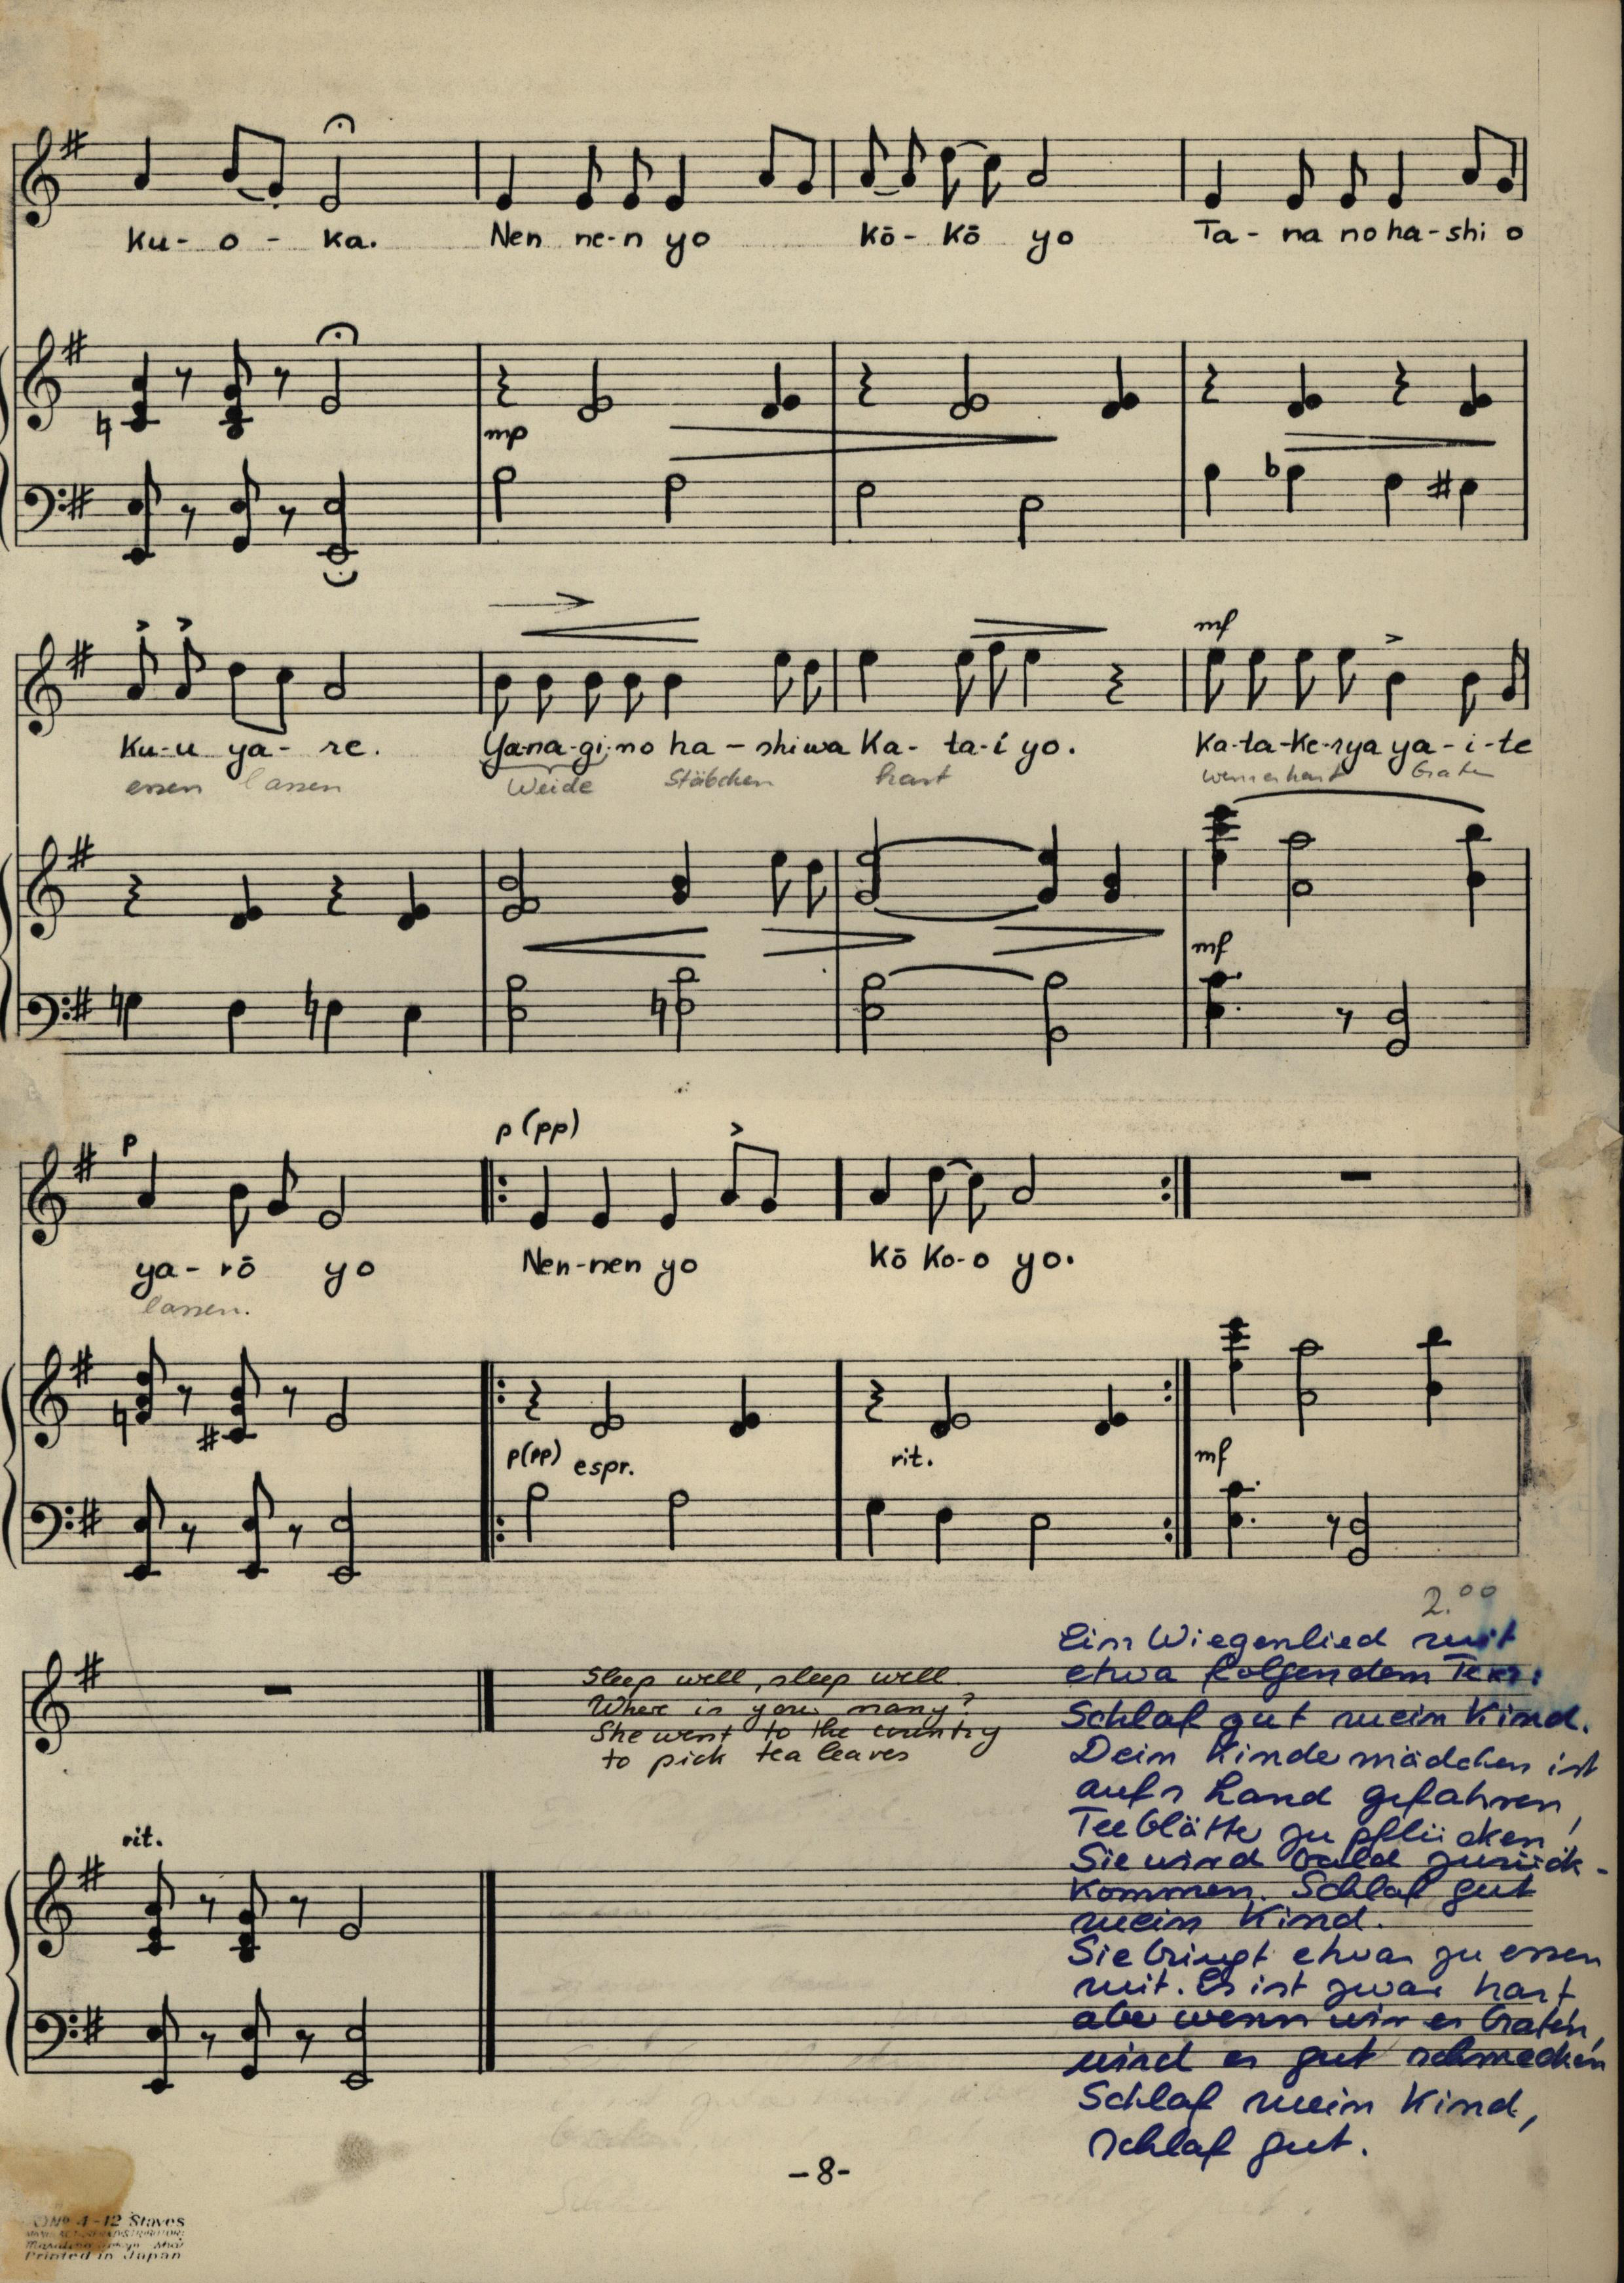 Ku- o - ka. Nen ne-n yo kō- kō yo Ta- na no ha-shi o
mp
Ku-u ya- re. Ya-na-gi-no ha - shi wa Ka- ta-i yo. mf Ka-ta-ke-rya ya-i-te
essen lassen Weide Stäbchen hart wenn er hart braten
mf
p p (pp)
ya- rō yo Nen-nen yo kō Ko-o yo.
lassen.
p(pp) espr. rit. mf
2.00
Sleep well, sleep well.
Where is your nany?
She went to the country
to pick tea leaves
rit.
Ein Wiegenlied mit
etwa folgendem Text:
Schlaf gut mein Kind.
Dein Kindermädchen ist
aufs Land gefahren,
Teeblätter zu pflücken!
Sie wird bald zurück-
kommen. Schlaf gut
mein Kind.
Sie bringt etwas zu essen
mit. Es ist zwar hart
aber wenn wir es braten,
wird es gut schmecken
Schlaf mein Kind,
schlaf gut.
-8-
Nº 4-12 Staves
Printed in Japan